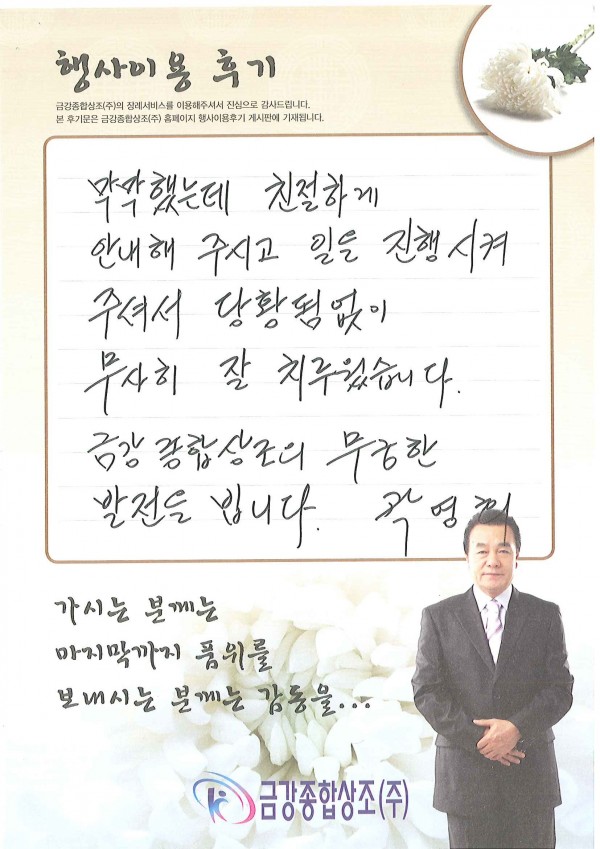 행사이용 후기
금강종합상조(주)의 장례서비스를 이용해주셔서 진심으로 감사드립니다.
본 후기문은 금강종합상조(주) 홈페이지 행사이용후기 게시판에 기재됩니다.
막막했는데 친절하게
안내해 주시고 일을 진행시켜
주셔서 당황됨없이
무사히 잘 치루웠습니다.
금강종합상조의 무궁한
발전을 빕니다. 곽영희
가시는 분께는
마지막까지 품위를
보내시는 분께는 감동을...
금강종합상조(주)